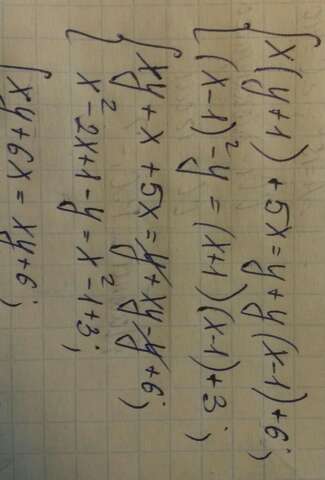 x(y+1)+5x=y+y(x-1)+6;
(x-1)²-y=(x+1)(x-1)+3;
xy+x+5x=y+xy-y+6;
x²-2x+1-y=x²-1+3;
xy+6x=xy+6;